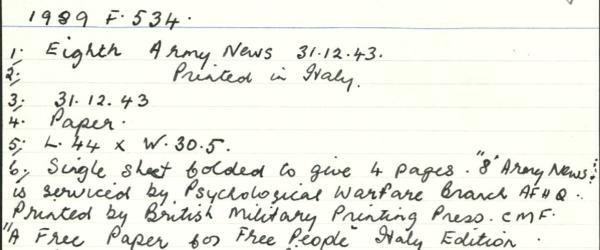 1989 F. 534.
1. Eighth Army News 31.12.43.
2. Printed in Italy.
3. 31.12.43
4. Paper.
5. L. 44 x W. 30.5.
6. Single sheet folded to give 4 pages. "8' Army News":
is serviced by Psychological Warfare Branch AFHQ.
Printed by British Military Printing Press. CMF.
"A Free Paper for Free People" Italy Edition.